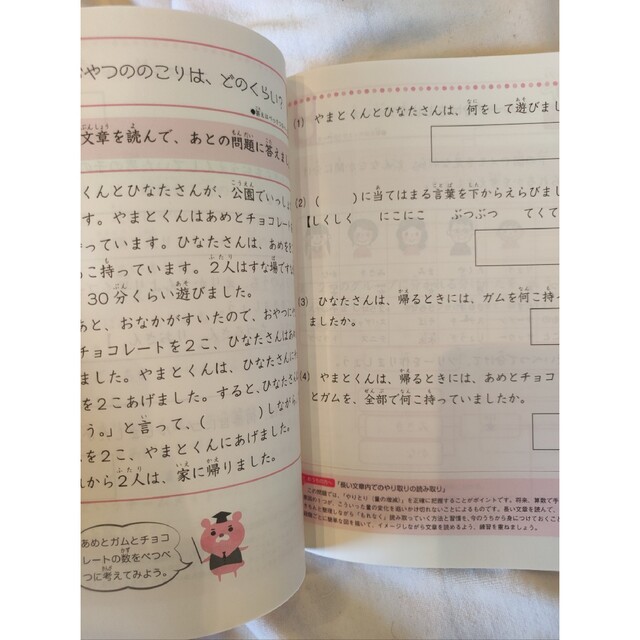 やつののこりは、どのくらい？
文章を読んで、あとの問題に答えま
くんとひなたさんが、公園でいっし
す。やまとくんはあめとチョコレート
っています。ひなたさんは、あめを
こ持っています。２人はすな場で
30分くらい遊びました。
あと、おなかがすいたので、おやつに
チョコレートを２こ、ひなたさんはあ
ました。やまとくんは、ひなたさんに
を２こあげました。すると、ひなたさん
う。」と言って、（　　　）しながら
を２こ、やまとくんにあげました。
から２人は、家に帰りました。
あめとガムとチョコ
レートの数をべつべ
つに考えてみよう。
(1) やまとくんとひなたさんは、何をして遊びま
(2) （　　　）に当てはまる言葉を下からえらびま
【しくしく　にこにこ　ぶつぶつ　てくて
(3) ひなたさんは、帰るときには、ガムを何こ持
ましたか。
(4) やまとくんは、帰るときには、あめとチョコ
とガムを、全部で何こ持っていましたか。
「長い文章内でのやり取りの読み取り」
この問題では、「やりとり（量の増減）」を正確に把握することがポイントです。将来、算数で